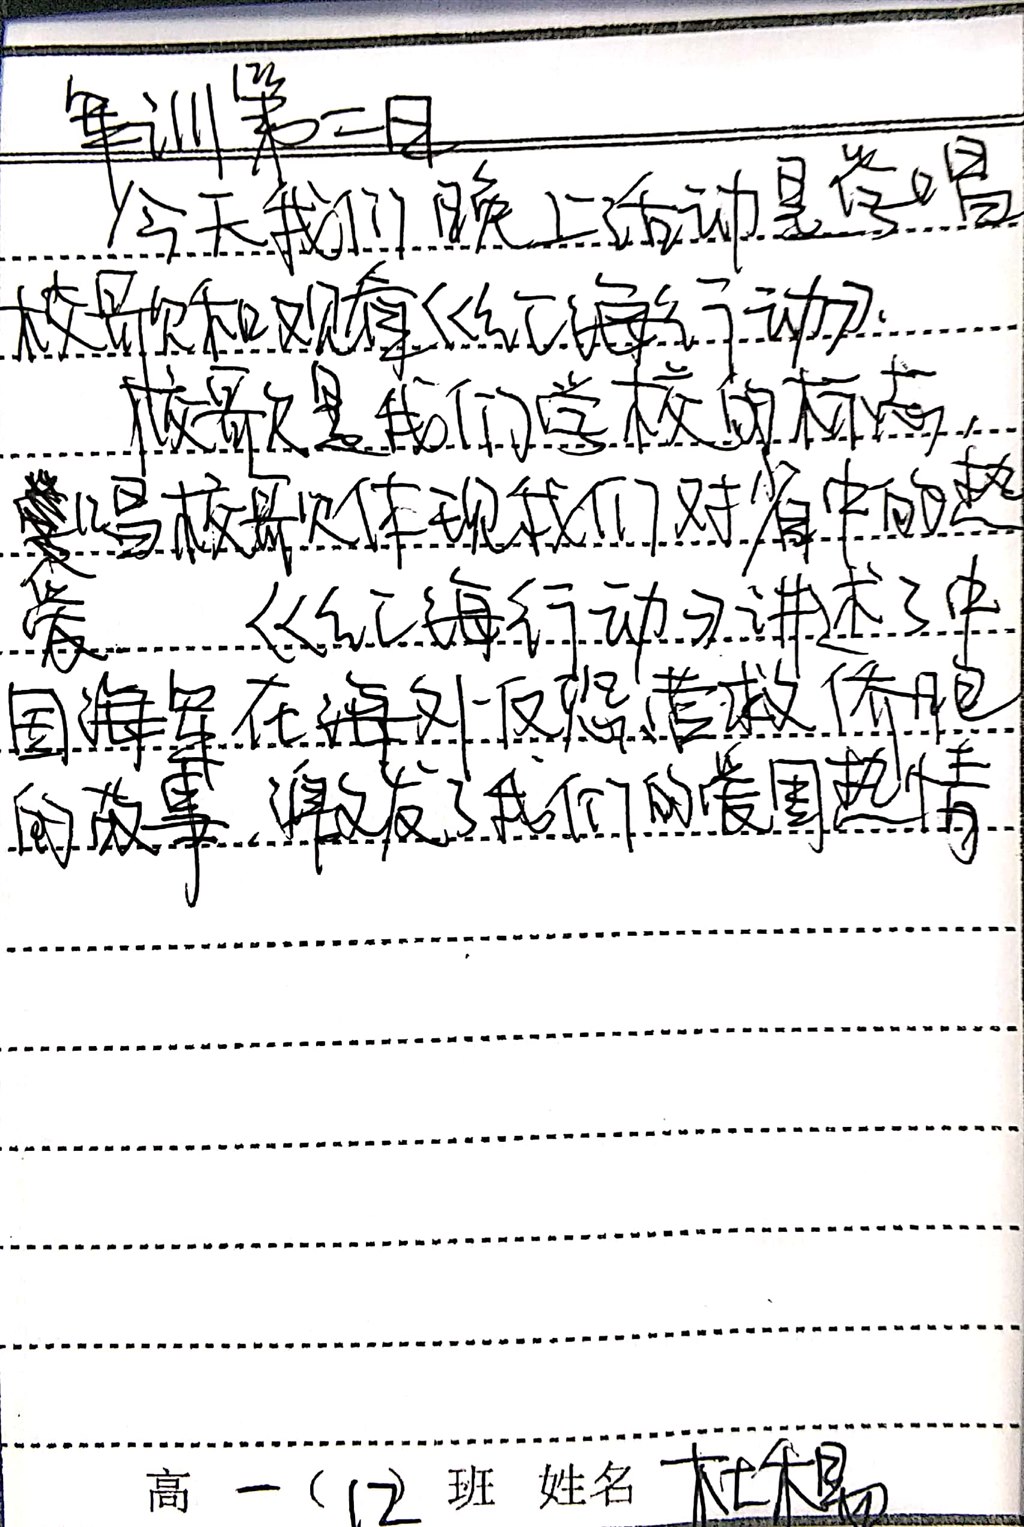 军训第二日
今天我们晚上活动是学唱
校歌和观看《红海行动》.
校歌是我们学校的标志,
唱校歌体现我们对省中的热
爱 《红海行动》讲述了中
国海军在海外反恐,营救侨胞
的故事,激发了我们的爱国热情
高一(12)班 姓名 杜